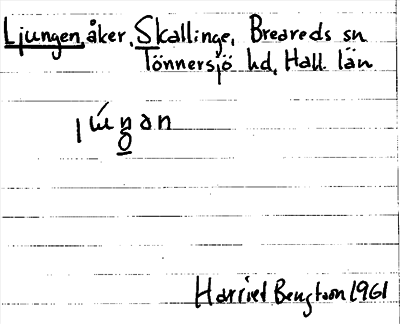 Ljungen, åker, Skallinge, Breareds sn
Tönnersjö hd, Hall. län
Harriet Bengtson 1961